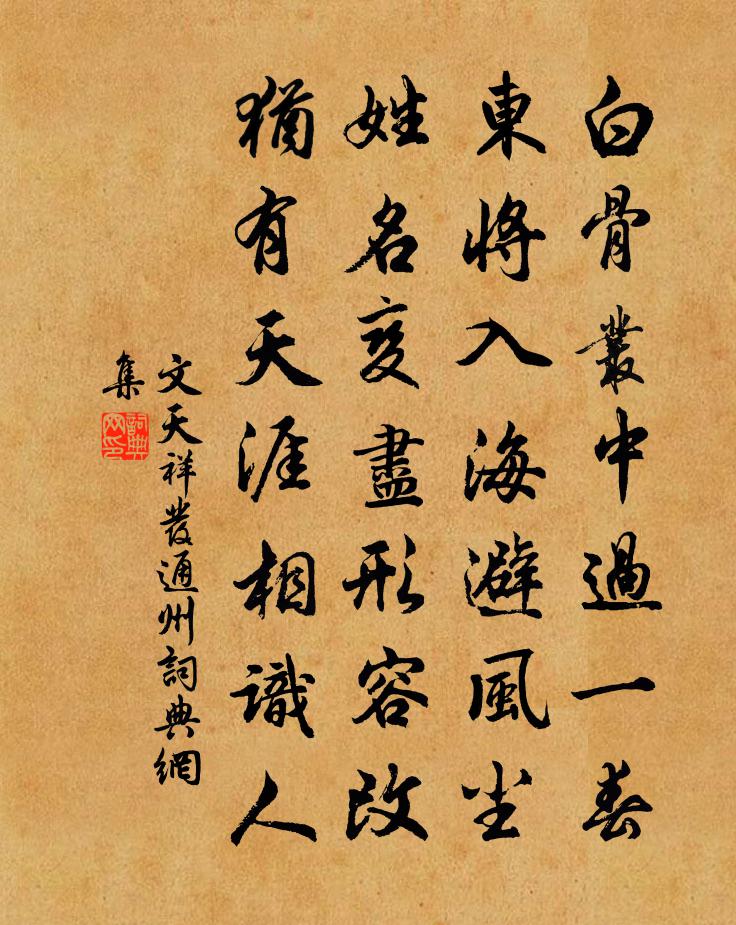 白骨叢中過一春
東將入海避風塵
姓名變盡形容改
猶有天涯相識人
文天祥發通州詞典網
集
詞典
网印